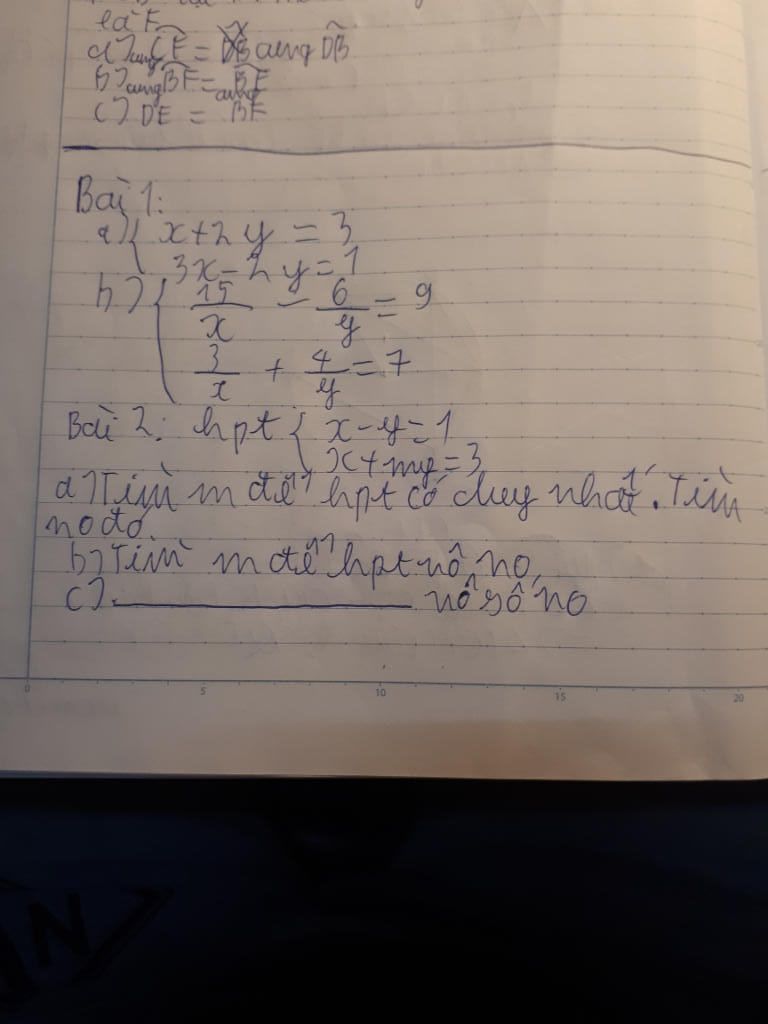 là F
a) cung CF = cung DB
b) cung BF = cung BE
c) DE = BF
Bài 1:
a) { x + 2y = 3
3x - 2y = 1
b) { 15/x - 6/y = 9
3/x + 4/y = 7
Bài 2: hpt { x - y = 1
x + my = 3
a) Tìm m để hpt có duy nhất. Tìm
no đó.
b) Tìm m để hpt vô no
c) ____________ vô số no
0 5 10 15 20